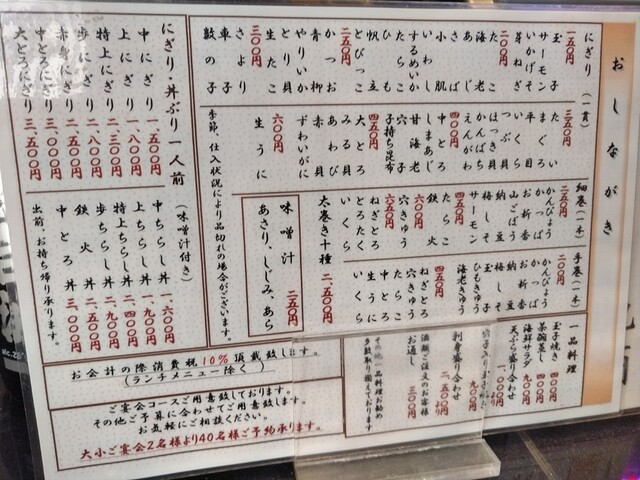 おしながき
にぎり(一貫)
一五〇円
玉子
サーモン
いかげそ
芽ねぎ
二〇〇円
海老
あじ
さば
小肌
いわし
するめいか
ひも
帆立
とびっこ
二五〇円
かつお
青柳
やりいか
とり貝
生たこ
三〇〇円
さより
車子
数の子
三五〇円
たい
まぐろ
平目
いくら
つぶ貝
ほっき貝
かんぱち
えんがわ
しまあじ
中とろ
甘海老
穴子
子持ち昆布
四五〇円
大とろ
あわび
みる貝
赤貝
ずわいがに
六〇〇円
生うに
季節、仕入状況により品切れの場合がございます。
細巻(一本)
二五〇円
かんぴょう
かっぱ
お新香
山ごぼう
納豆
梅しそ
サーモン
四五〇円
たらこ
鉄火
六〇〇円
穴きゅう
ねぎとろ
とろたく
いくら
六五〇円
太巻き十種 二、五〇〇円
手巻(一本)
二〇〇円
かんぴょう
かっぱ
お新香
納豆
梅しそ
玉子
ひもきゅう
海老きゅう
四五〇円
ねぎとろ
穴きゅう
たらこ
中とろ
生うに
いくら
味噌汁 二五〇円
あさり、しじみ、あら
一品料理
玉子焼き 四〇〇円
茶碗蒸し 四〇〇円
海鮮サラダ 九〇〇円
天ぷら盛り合わせ 一、〇〇〇円
九〇〇円
刺身盛り合わせ 二、五〇〇円
酒類ご注文のお客様
お通し 三〇〇円
その他、一品料理お勧め
多数取り揃えております
にぎり・丼ぶり一人前(味噌汁付き)
中にぎり 一、五〇〇円
上にぎり 一、八〇〇円
特上にぎり 二、三〇〇円
歩にぎり 二、八〇〇円
赤身にぎり 二、五〇〇円
中とろにぎり 三、〇〇〇円
大とろにぎり 三、五〇〇円
中ちらし丼 一、六〇〇円
上ちらし丼 一、九〇〇円
特上ちらし丼 二、四〇〇円
歩ちらし丼 二、九〇〇円
鉄火丼 二、五〇〇円
中とろ丼 三、〇〇〇円
出前、お持ち帰り承ります。
お会計の際消費税10%頂戴致します。
(ランチメニュー除く)
ご宴会コースご用意致しております。
その他ご予算に合わせてご用意致します。
お気軽にご相談ください。
大小ご宴会2名様より40名様ご予約承ります。